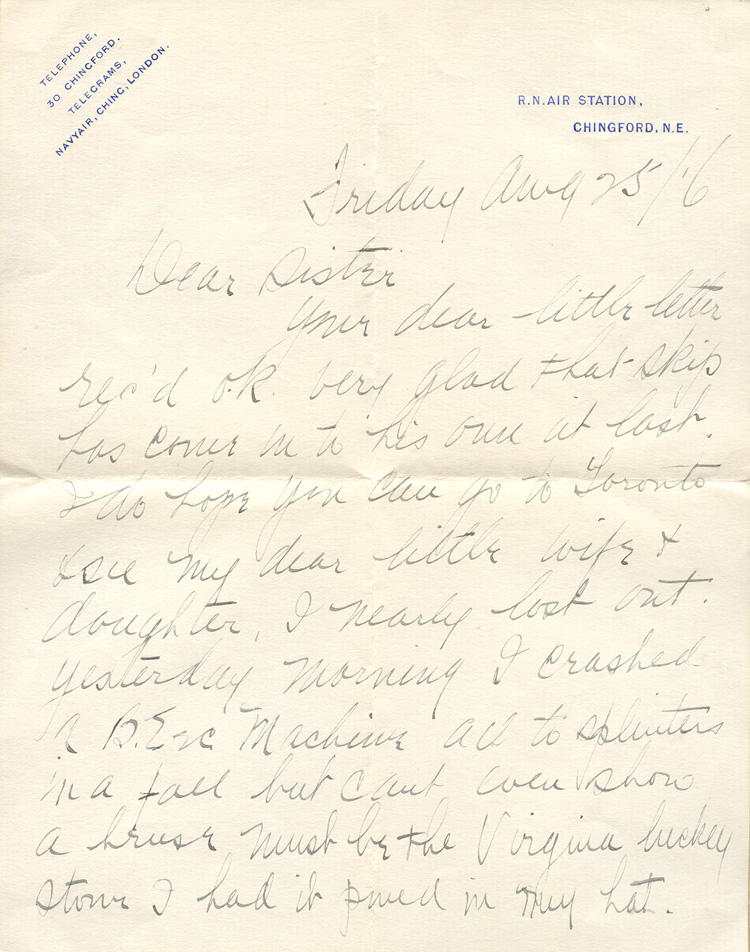 TELEPHONE,
30 CHINGFORD.
TELEGRAMS,
NAVYAIR, CHING, LONDON.
R.N. AIR STATION,
CHINGFORD, N.E.
Friday Aug 25/16
Dear Sister
Your dear little letter
rec'd o.k. very glad that Skip
has come in to his own at last.
I do hope you can go to Toronto
& see my dear little wife &
daughter, I nearly lost out.
yesterday morning I crashed
a B.E2c Machine all to splinters
in a fall but cant even show
a bruse must be the Virgina luckey
stone I had it pined in my hat.